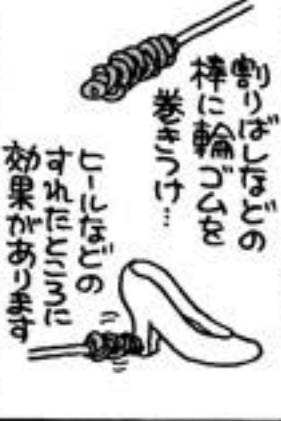 割りばしなどの
棒に輪ゴムを
巻きつけ…
ヒールなどの
すれたところに
効果があります